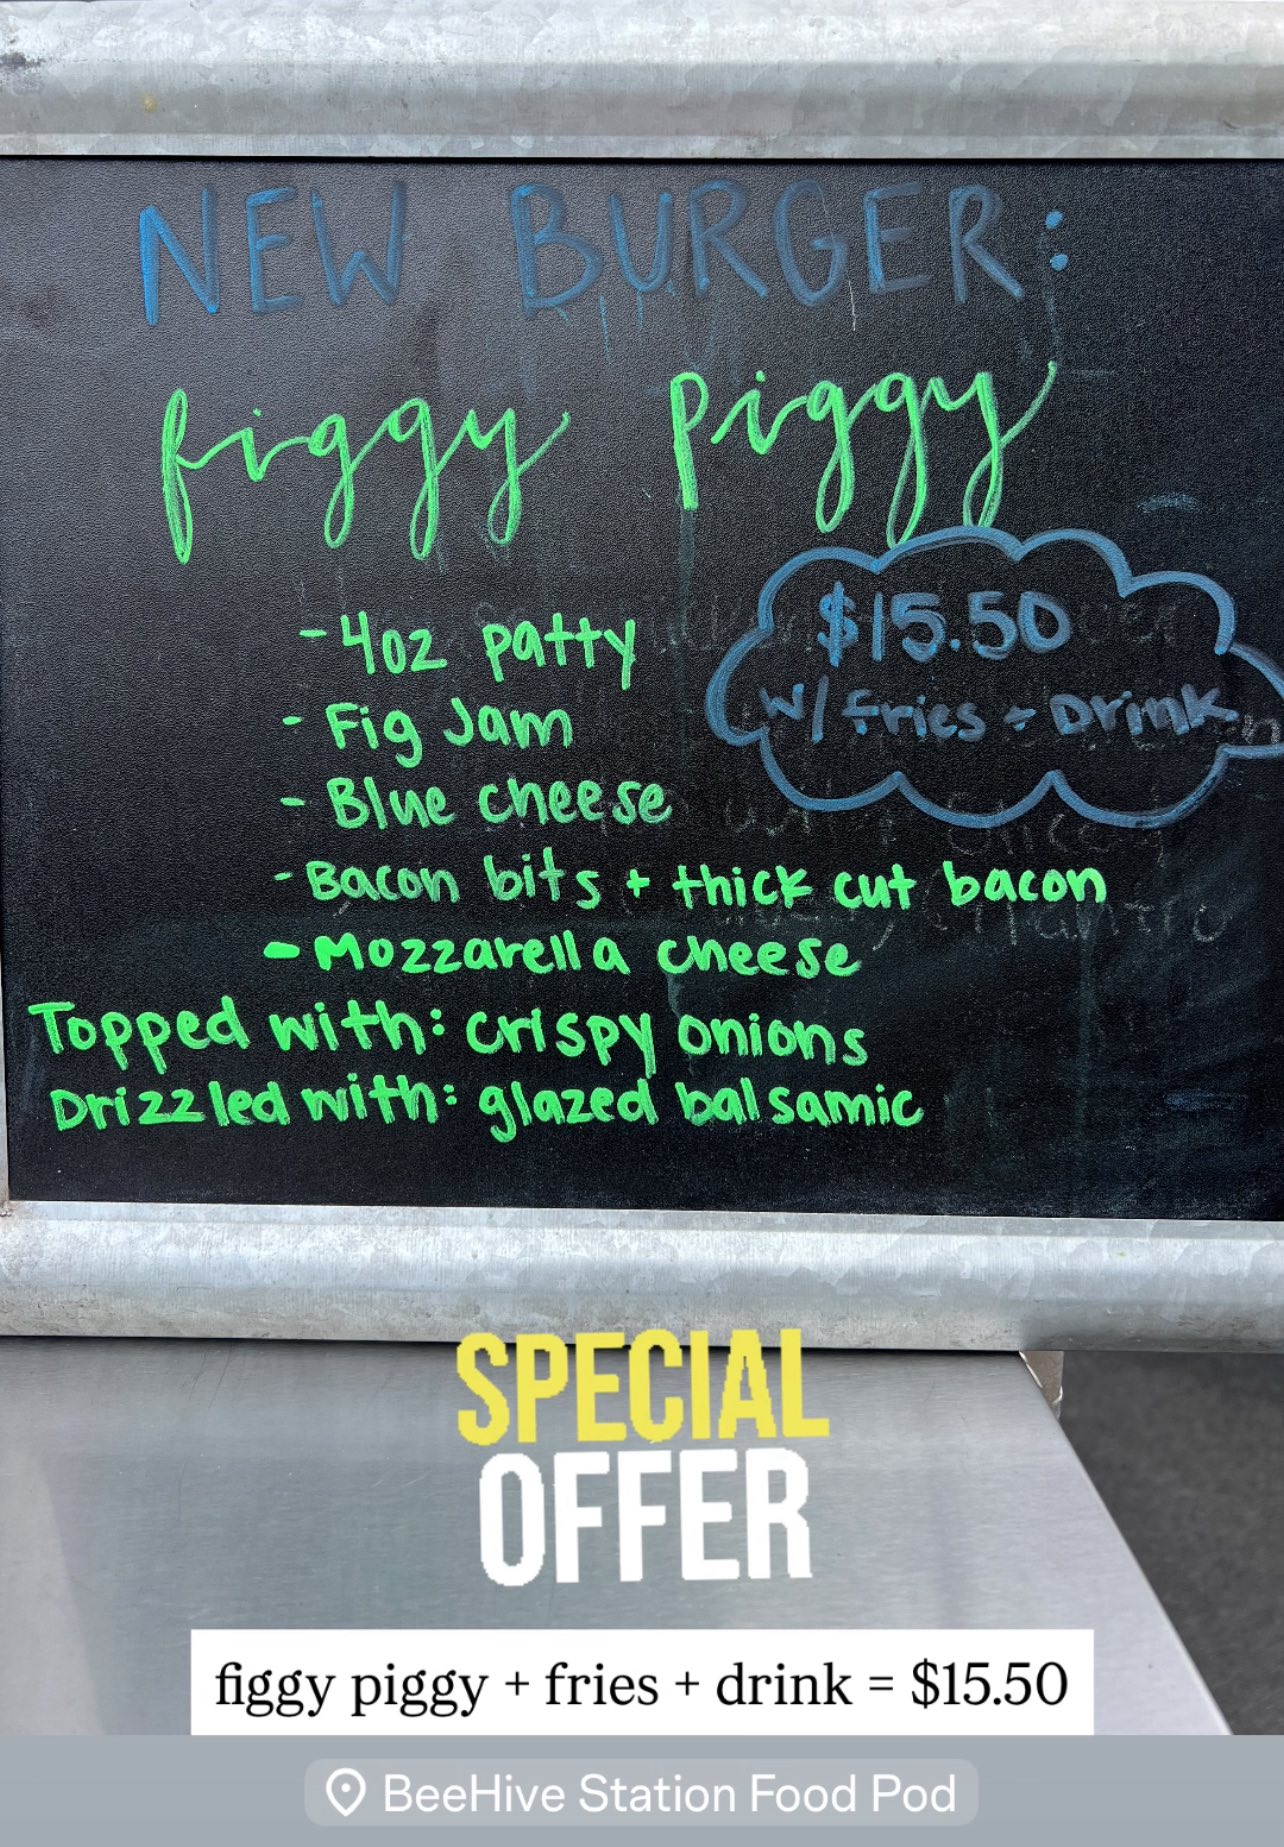 NEW BURGER:
figgy piggy
$15.50
w/ fries + Drink
- 4oz patty
- Fig Jam
- Blue cheese
- Bacon bits + thick cut bacon
- Mozzarella cheese
Topped with: crispy onions
Drizzled with: glazed balsamic
SPECIAL
OFFER
figgy piggy + fries + drink = $15.50
BeeHive Station Food Pod